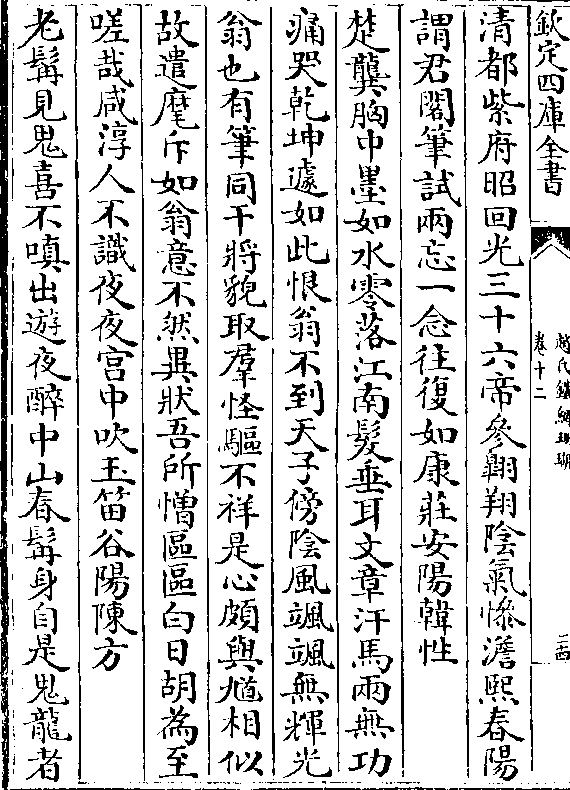 欽定四庫全書
趙氏鐵網珊瑚
卷十二
二四
清都紫府昭回光三十六帝參翺翔陰氣慘澹熙春陽
謂君閣筆試兩忘一念往復如康莊安陽韓性
楚龔胸中墨如水零落江南髮垂耳文章汗馬兩無功
痛哭乾坤遽如此恨翁不到天子傍陰風颯颯無輝光
翁也有筆同干將貌取羣怪驅不祥是心頗與馗相似
故遣麾斥如翁意不然異狀吾所憎區區白日胡為至
嗟哉咸淳人不識夜夜宮中吹玉笛谷陽陳方
老髯見鬼喜不嗔出遊夜醉中山春髯身自是鬼龍者